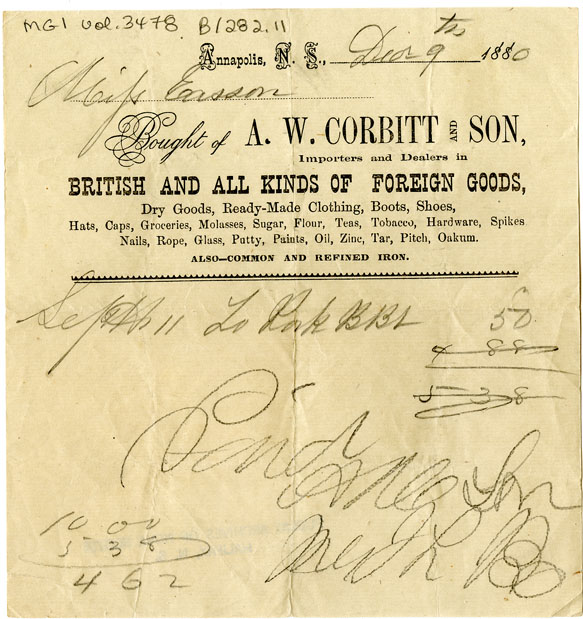 MG1 vol. 3478 B/282.11
Annapolis, N. S., Decr 9th 1880
Miss Easson
Bought of A. W. CORBITT AND SON,
Importers and Dealers in
BRITISH AND ALL KINDS OF FOREIGN GOODS,
Dry Goods, Ready-Made Clothing, Boots, Shoes,
Hats, Caps, Groceries, Molasses, Sugar, Flour, Teas, Tobacco, Hardware, Spikes
Nails, Rope, Glass, Putty, Paints, Oil, Zinc, Tar, Pitch, Oakum.
ALSO—COMMON AND REFINED IRON.
Sept 11 To Pork 50
4 88
5 38
Paid
A W C & Son
10 00
5 38
4 62